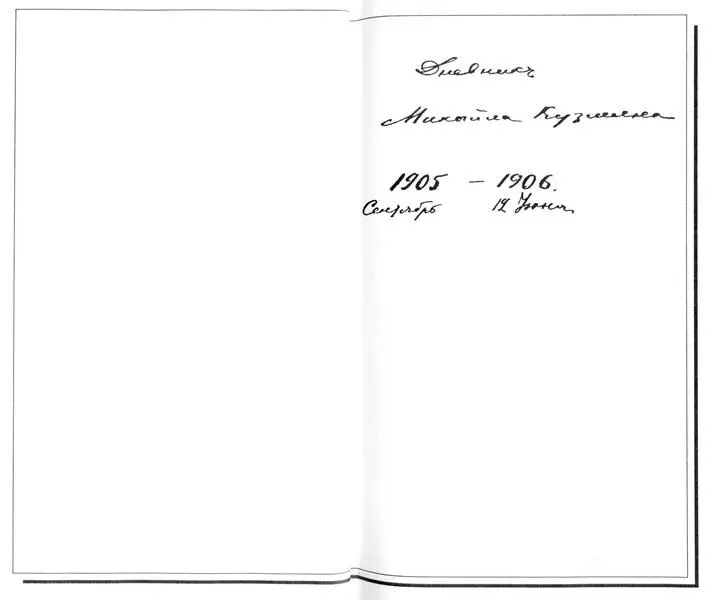 Дневникъ
Михаила Кузмина
1905 – 1906.
Сентябрь 12 Июня